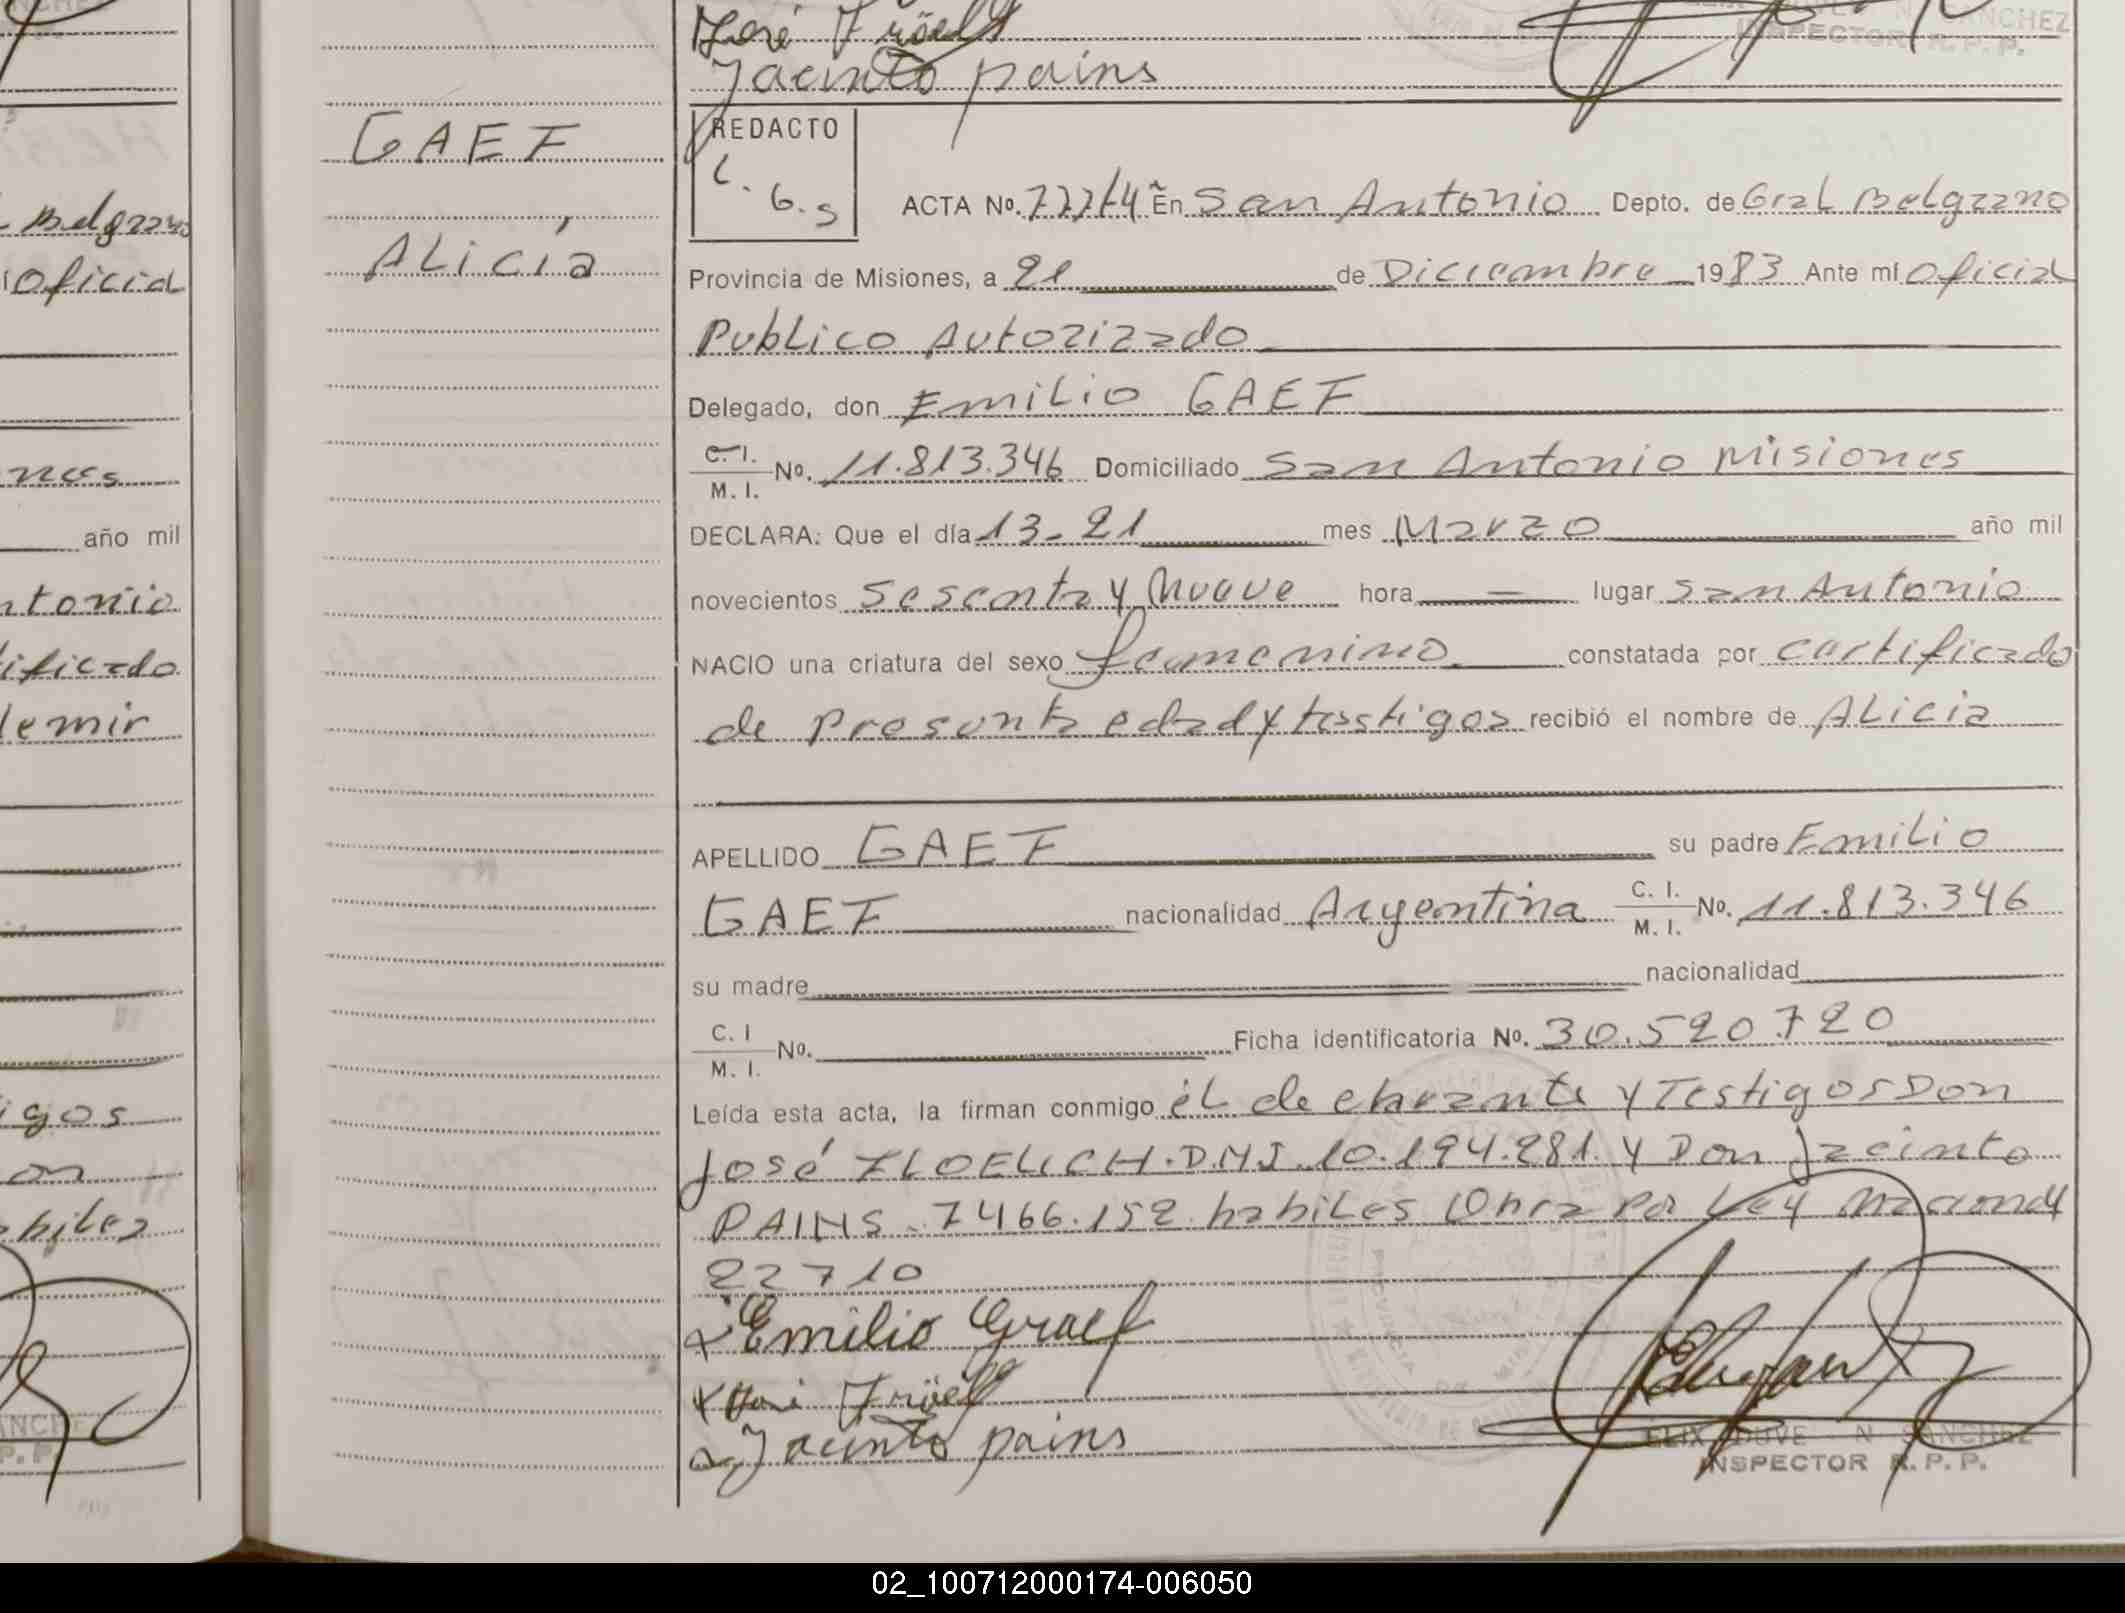 José
Jacinto pains
SANCHEZ
INSPECTOR R. P. P.
GAEF
ALicía
Belgrano
Oficial
nes
año mil
ntonio
ificado
demir
igos
on
biles
REDACTO
6.5
ACTA Nº. En San Antonio Depto. de Gral Belgrano
Provincia de Misiones, a 21 de Diciembre 1983 Ante mí Oficial
Publico Autorizado
Delegado, don Emilio GAEF
C. I. M. I. Nº. 11.813.346 Domiciliado San Antonio Misiones
DECLARA: Que el día 13-21 mes Marzo año mil
novecientos Sesenta y Nueve hora — lugar San Antonio
NACIO una criatura del sexo femenino constatada por certificado
de Presunta edad y testigos recibió el nombre de ALicia
APELLIDO GAEF su padre Emilio
GAEF nacionalidad Argentina C. I. M. I. Nº. 11.813.346
su madre nacionalidad
C. I M. I. Nº. Ficha identificatoria Nº. 30.520.720
Leída esta acta, la firman conmigo él declarante y Testigos Don
José FLOELICH. D.N.I. 10.194.281. y Don Jacinto
PAINS. 7466.152. habiles Obra por Ley nacional
22710
Emilio Graef
Jacinto pains
SANCHEZ
INSPECTOR R. P. P.
02_100712000174-006050